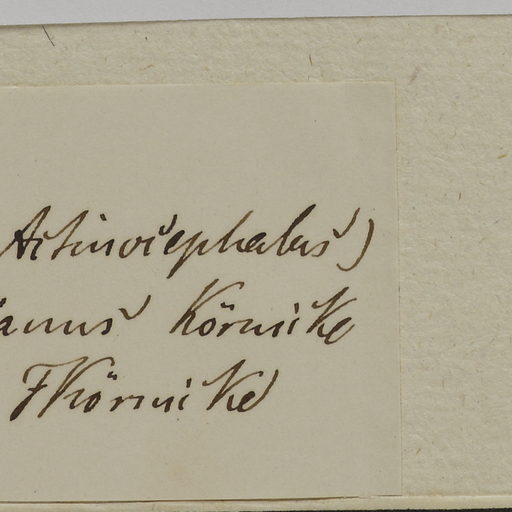 Actinocephalus)
ianus Körnicke
FKörnicke